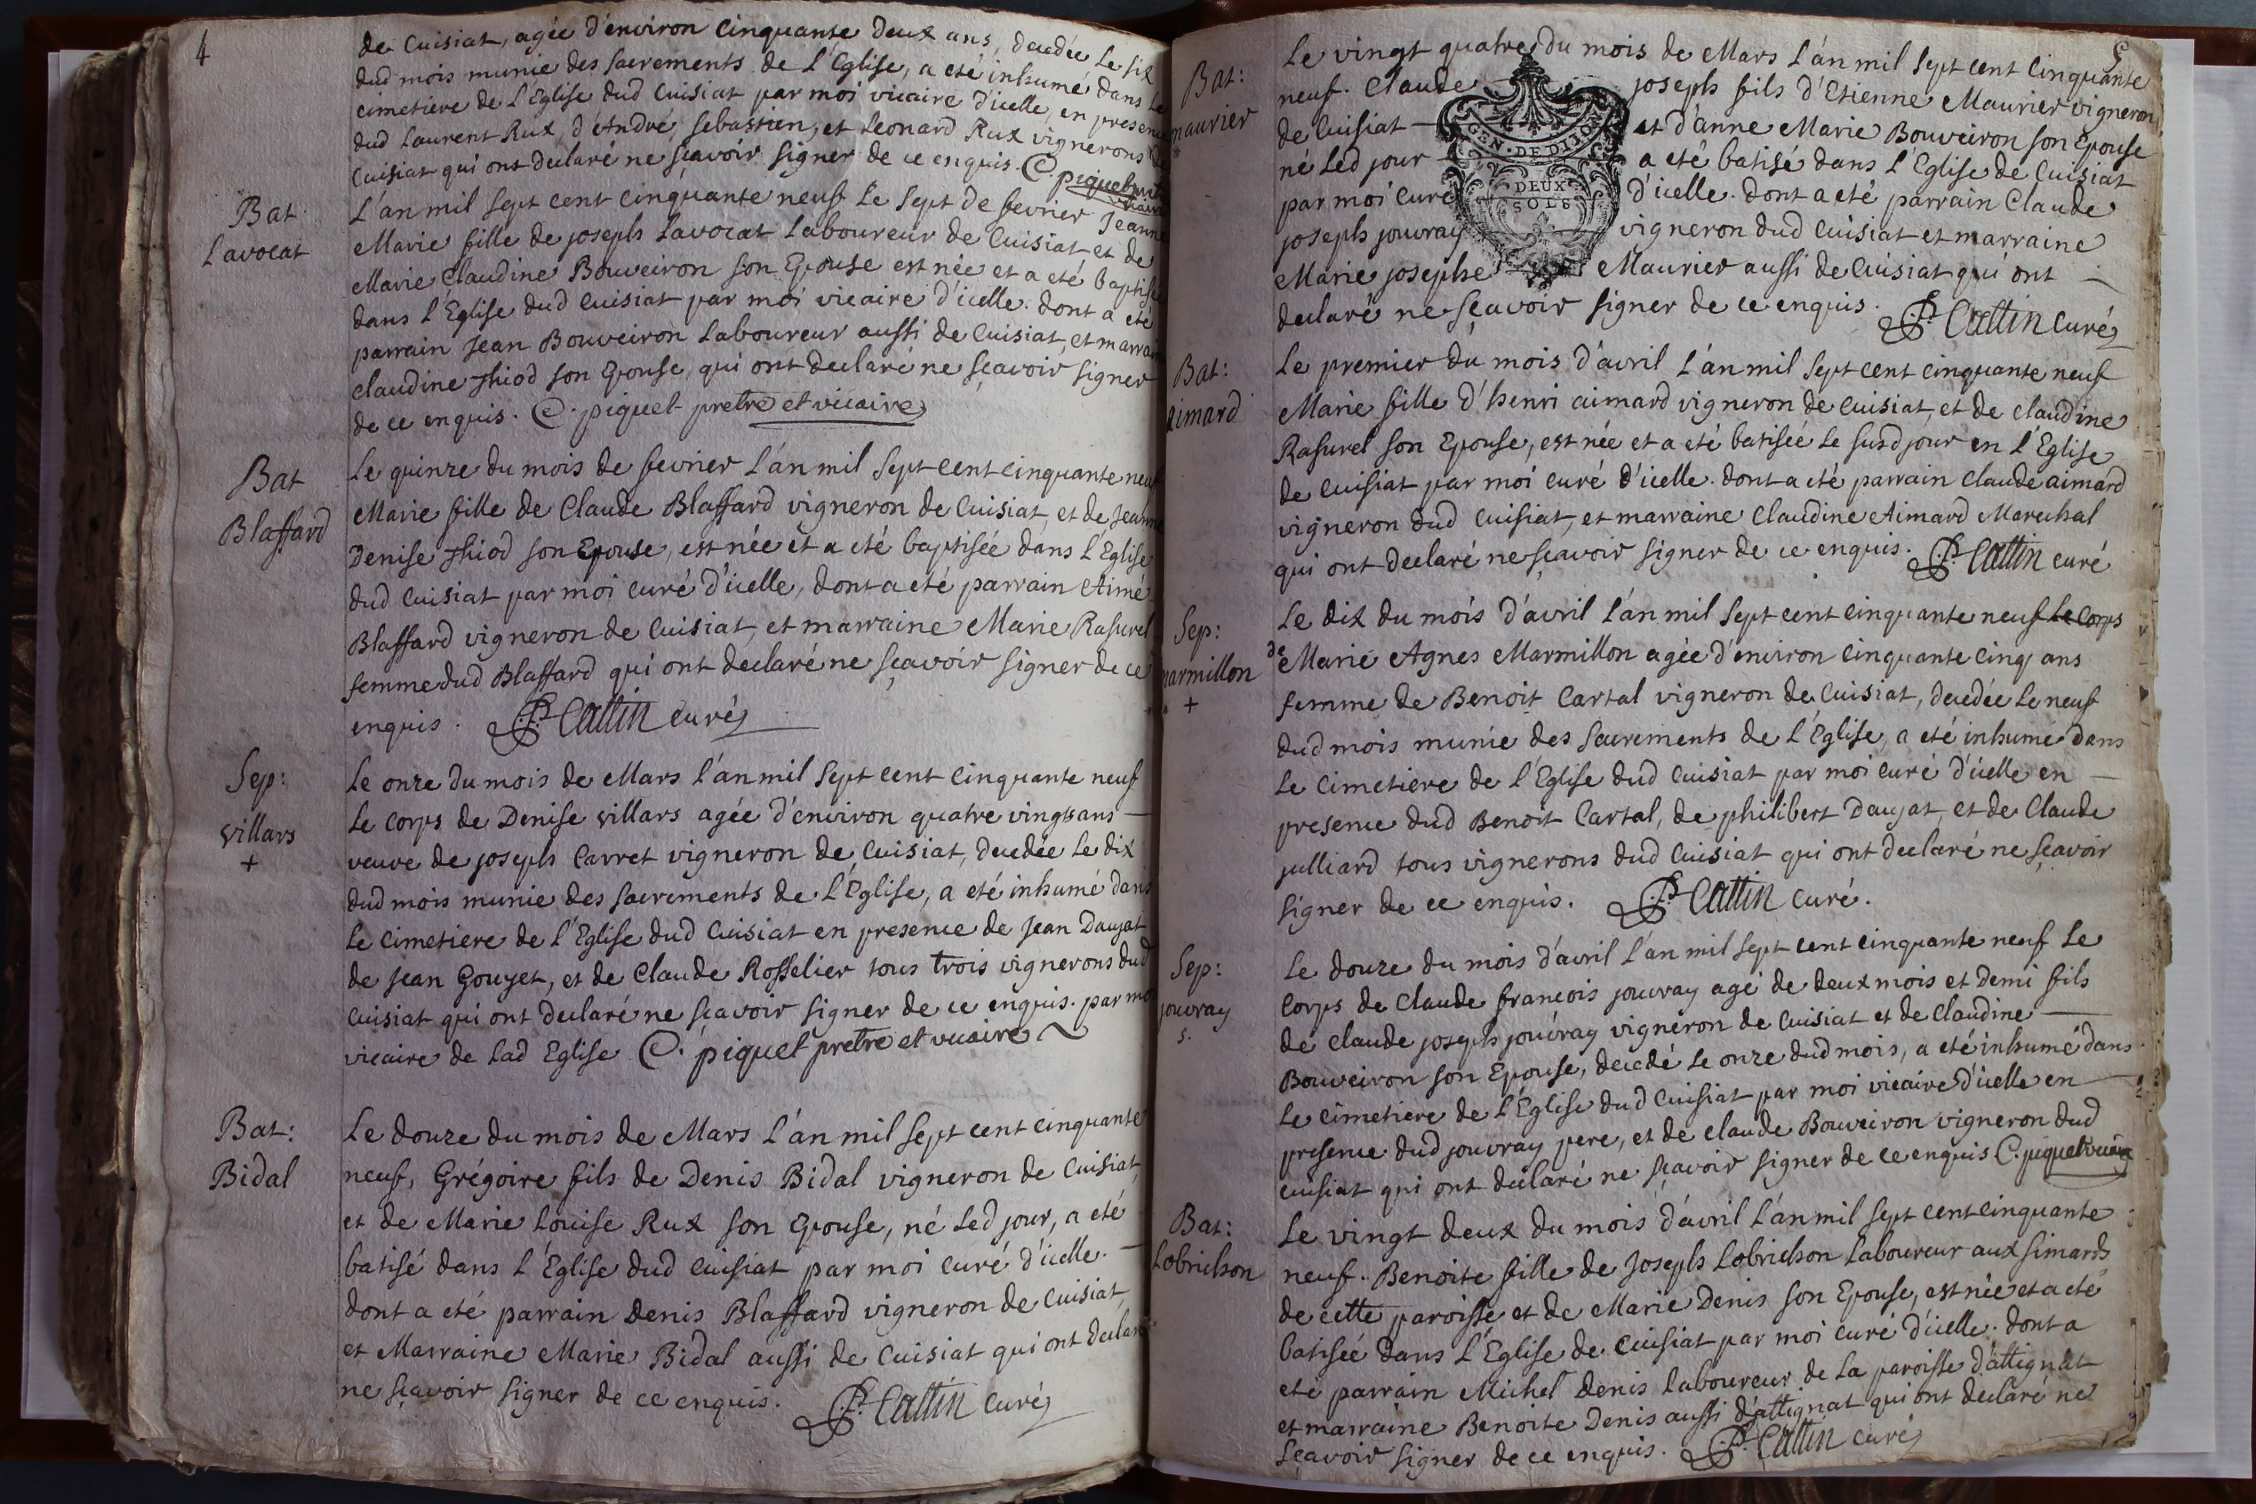 4
de Cuisiat, agée d'environ Cinquante deux ans, decedée Le six
dud mois munie des sacrements de L'Eglise, a eté inhumé dans Le
cimetiere de L'Eglise dud Cuisiat par moi vicaire d'icelle, en presence
dud Laurent Rux, d'Andre, sebastien, et Leonard Rux vignerons de
Cuisiat qui ont declaré ne sçavoir signer de ce enquis. C. piquet
Bat
Lavocat
L'an mil sept cent cinquante neuf Le sept de fevrier Jeanne
Marie fille de joseph Lavocat Laboureur de Cuisiat, et de
Marie Claudine Bouveiron son Epouse est née et a eté baptisée
dans L'Eglise dud Cuisiat par moi vicaire d'icelle. dont a eté
parrain Jean Bouveiron Laboureur aussi de Cuisiat, et marraine
claudine Thiod son Epouse, qui ont declaré ne sçavoir signer
de ce enquis. C. piquet pretre et vicaire
Bat
Blaffard
Le quinze du mois de fevrier L'an mil sept cent cinquante neuf
Marie fille de Claude Blaffard vigneron de Cuisiat, et de Jeanne
Denise Thiod son Epouse, est née et a eté baptisée dans L'Eglise
dud Cuisiat par moi curé d'icelle, dont a eté parrain Aimé
Blaffard vigneron de Cuisiat, et marraine Marie Rasurel
femme dud Blaffard qui ont declaré ne sçavoir signer de ce
enquis. P. Cattin curé
Sep:
villars
+
Le onze du mois de Mars l'an mil sept cent cinquante neuf
Le corps de Denise villars agée d'environ quatre vingts ans
veuve de joseph Carret vigneron de Cuisiat, decedée Le dix
dud mois munie des sacrements de L'Eglise, a eté inhumé dans
Le Cimetiere de l'Eglise dud Cuisiat en presence de Jean Daujat
de Jean Goujet, et de Claude Rosselier tous trois vignerons dud
Cuisiat qui ont declaré ne sçavoir signer de ce enquis. par moi
vicaire de Lad Eglise C. piquet pretre et vicaire
Bat:
Bidal
Le douze du mois de Mars L'an mil sept cent cinquante
neuf, Grégoire fils de Denis Bidal vigneron de Cuisiat,
et de Marie Louise Rux son Epouse, né Led jour, a eté
batisé dans L'Eglise dud Cuisiat par moi curé d'icelle.
dont a eté parrain Denis Blaffard vigneron de Cuisiat,
et Marraine Marie Bidal aussi de Cuisiat qui ont declaré
ne sçavoir signer de ce enquis. P. Cattin curé
5
Bat:
maurier
Le vingt quatre du mois de Mars L'an mil sept cent Cinquante
neuf. Claude joseph fils d'Etienne Maurier vigneron
de Cuisiat et d'anne Marie Bouveiron son Epouse
né Led jour a eté batisé dans L'Eglise de Cuisiat
par moi curé d'icelle. dont a eté parrain Claude
joseph jouvray vigneron dud Cuisiat et marraine
Marie josephe Maurier aussi de Cuisiat qui ont
declaré ne sçavoir signer de ce enquis. P. Cattin curé
GEN. DE DIJON
DEUX
SOLS
Bat:
aimard
Le premier du mois d'avril L'an mil sept cent cinquante neuf
Marie fille d'henri aimard vigneron de Cuisiat, et de claudine
Rasurel son Epouse, est née et a eté batisée Le susd jour en L'Eglise
de Cuisiat par moi curé d'icelle. dont a eté parrain Claude aimard
vigneron dud Cuisiat, et marraine Claudine Aimard Marechal
qui ont declaré ne sçavoir signer de ce enquis. P. Cattin curé
Sep:
marmillon
+
Le dix du mois d'avril L'an mil sept cent cinquante neuf Le Corps
de Marie Agnes Marmillon agée d'environ Cinquante Cinq ans
femme de Benoit Cartal vigneron de Cuisiat, decedée Le neuf
dud mois munie des sacrements de L'Eglise, a eté inhumé dans
Le Cimetiere de l'Eglise dud Cuisiat par moi curé d'icelle en
presence dud Benoit Cartal, de philibert Daujat, et de Claude
julliard tous vignerons dud Cuisiat qui ont declaré ne sçavoir
signer de ce enquis. P. Cattin curé.
Sep:
jouvray
s.
Le douze du mois d'avril L'an mil sept cent cinquante neuf Le
Corps de Claude francois jouvray agé de deux mois et demi fils
de claude joseph jouvray vigneron de Cuisiat et de claudine
Bouveiron son Epouse, decedé Le onze dud mois, a eté inhumé dans
Le Cimetiere de L'Eglise dud Cuisiat par moi vicaire d'icelle en
presence dud jouvray pere, et de claude Bouveiron vigneron dud
Cuisiat qui ont declaré ne sçavoir signer de ce enquis C. piquet vicaire
Bat:
Lobrichon
Le vingt deux du mois d'avril L'an mil sept cent cinquante
neuf. Benoite fille de Joseph Lobrichon Laboureur aux simards
de cette paroisse et de Marie Denis son Epouse, est née et a eté
batisée dans L'Eglise de Cuisiat par moi curé d'icelle. dont a
eté parrain Michel Denis Laboureur de La paroisse d'attignat
et marraine Benoite Denis aussi d'attignat qui ont declaré ne
sçavoir signer de ce enquis. P. Cattin curé